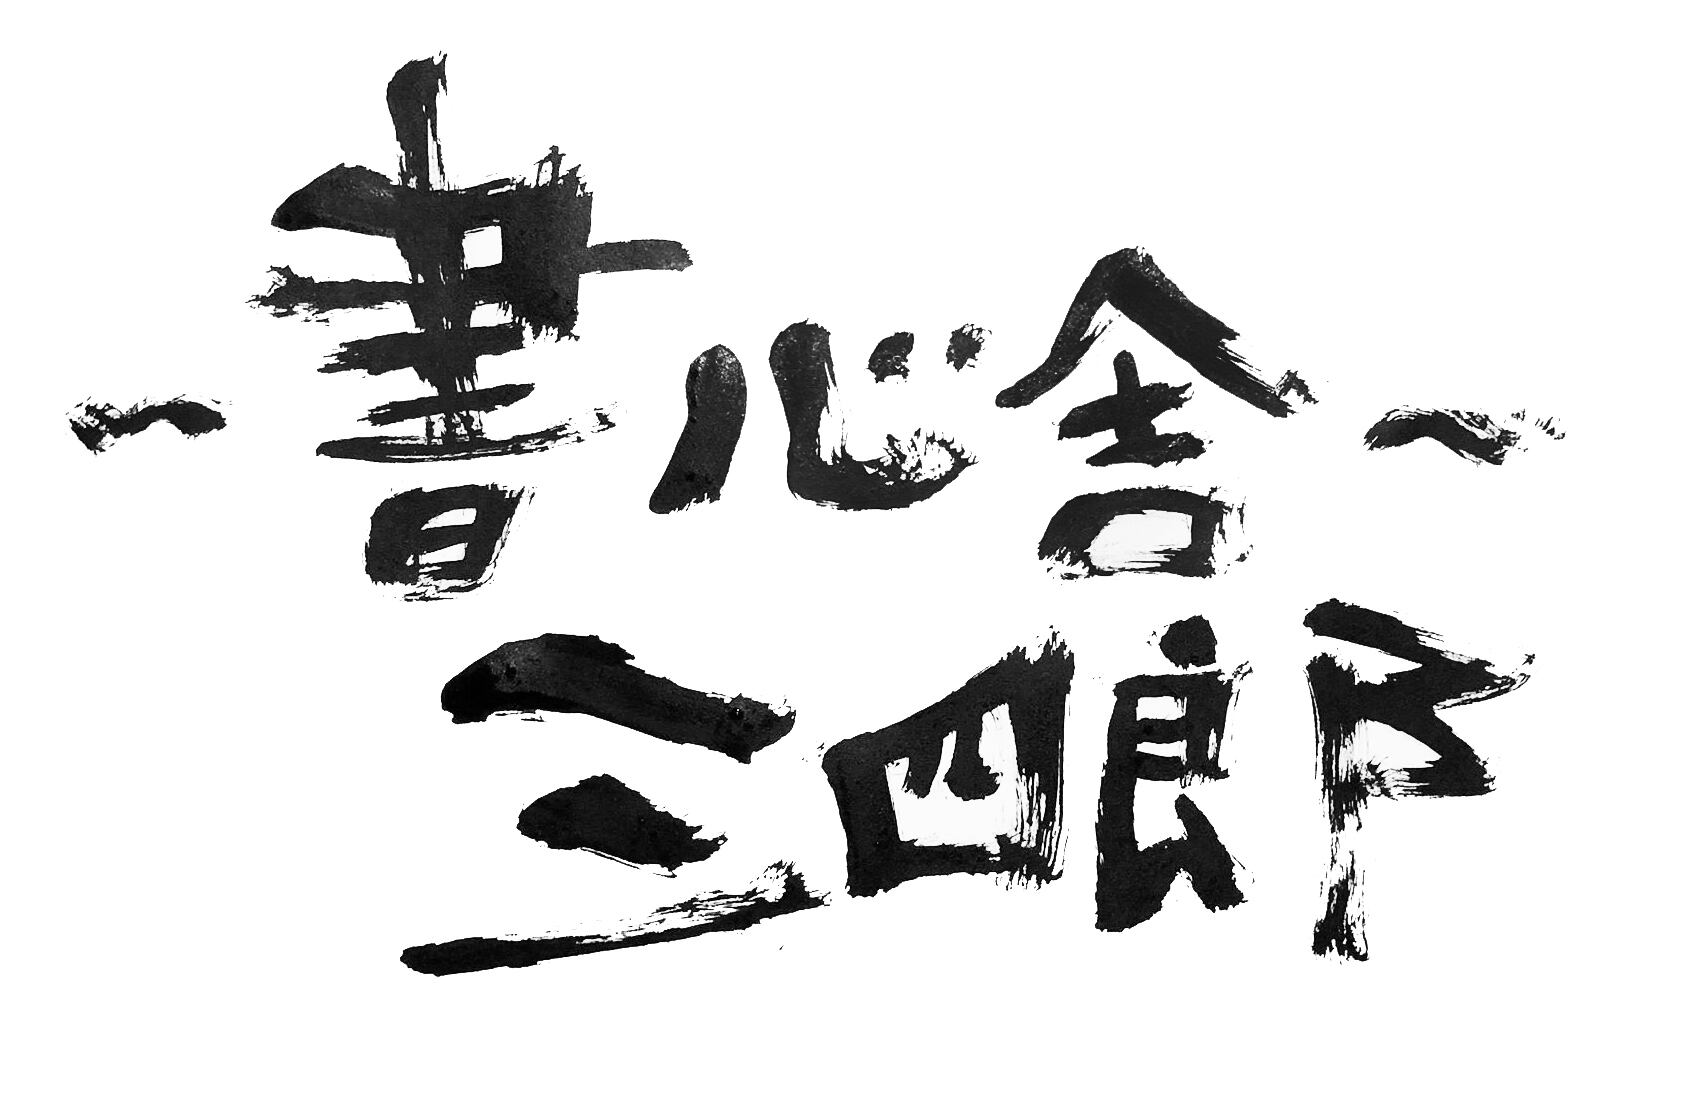 ~書心舎~
三四郎